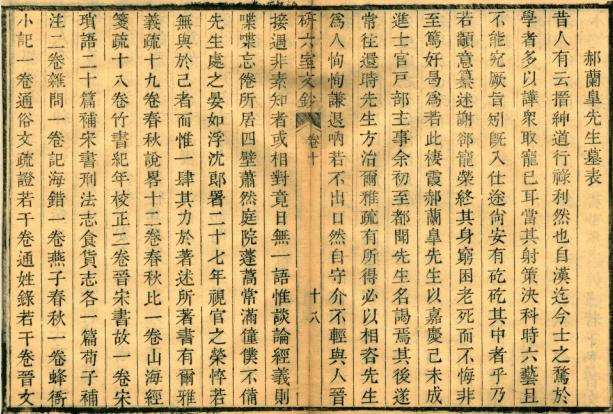 郝蘭臯先生墓表
昔人有云搢紳道行祿利然也自漢迄今士之騖於
學者多以譁衆取寵已耳當其射策決科時六藝且
不能究厥言矧旣入仕途尙安有矻矻其中者乎乃
若顓意墓述謝卻寵榮終其身窮困老死而不悔非
至篤好曷爲若此棲霞郝蘭臯先生以嘉慶己未成
進士官戸部主事余初至都聞先生名謁焉其後遂
常往還時先生方治爾雅疏有所得必以相咨先生
爲人恂恂謙退吶若不出口然自守介不輕與人晉
接遇非素知者或相對竟日無一語惟談論經義則
研六室文鈔 卷十 十八
喋喋忘倦所居四壁蕭然庭院蓬蒿常滿僮僕不備
先生處之晏如浮沈郞署二十七年視官之榮悴若
無與於己者而惟一肆其力於著述所著書有爾雅
義疏十九卷春秋說畧十二卷春秋比一卷山海經
箋疏十八卷竹書紀年校正三卷晉宋書故一卷宋
瑣語二十篇補宋書刑法志食貨志各一篇荀子補
注二卷雜問一卷記海錯一卷燕子春秋一卷蜂衙
小記一卷通俗文疏證若干卷通姓錄若干卷晉文